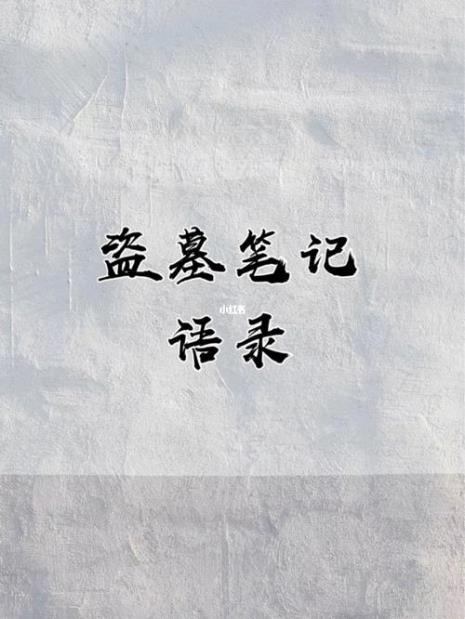 盗墓笔记
小红书
语录